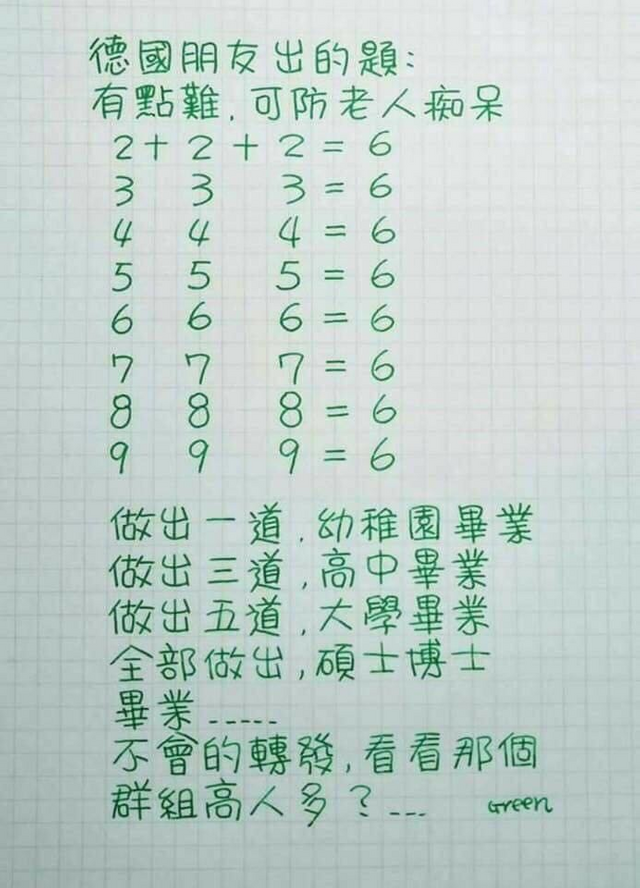 德國朋友出的題:
有點難,可防老人痴呆
2+2+2=6
3 3 3=6
4 4 4=6
5 5 5=6
6 6 6=6
7 7 7=6
8 8 8=6
9 9 9=6
做出一道,幼稚園畢業
做出三道,高中畢業
做出五道,大學畢業
全部做出,碩士博士
畢業-----
不會的轉發,看看那個
群組高人多?---
Green